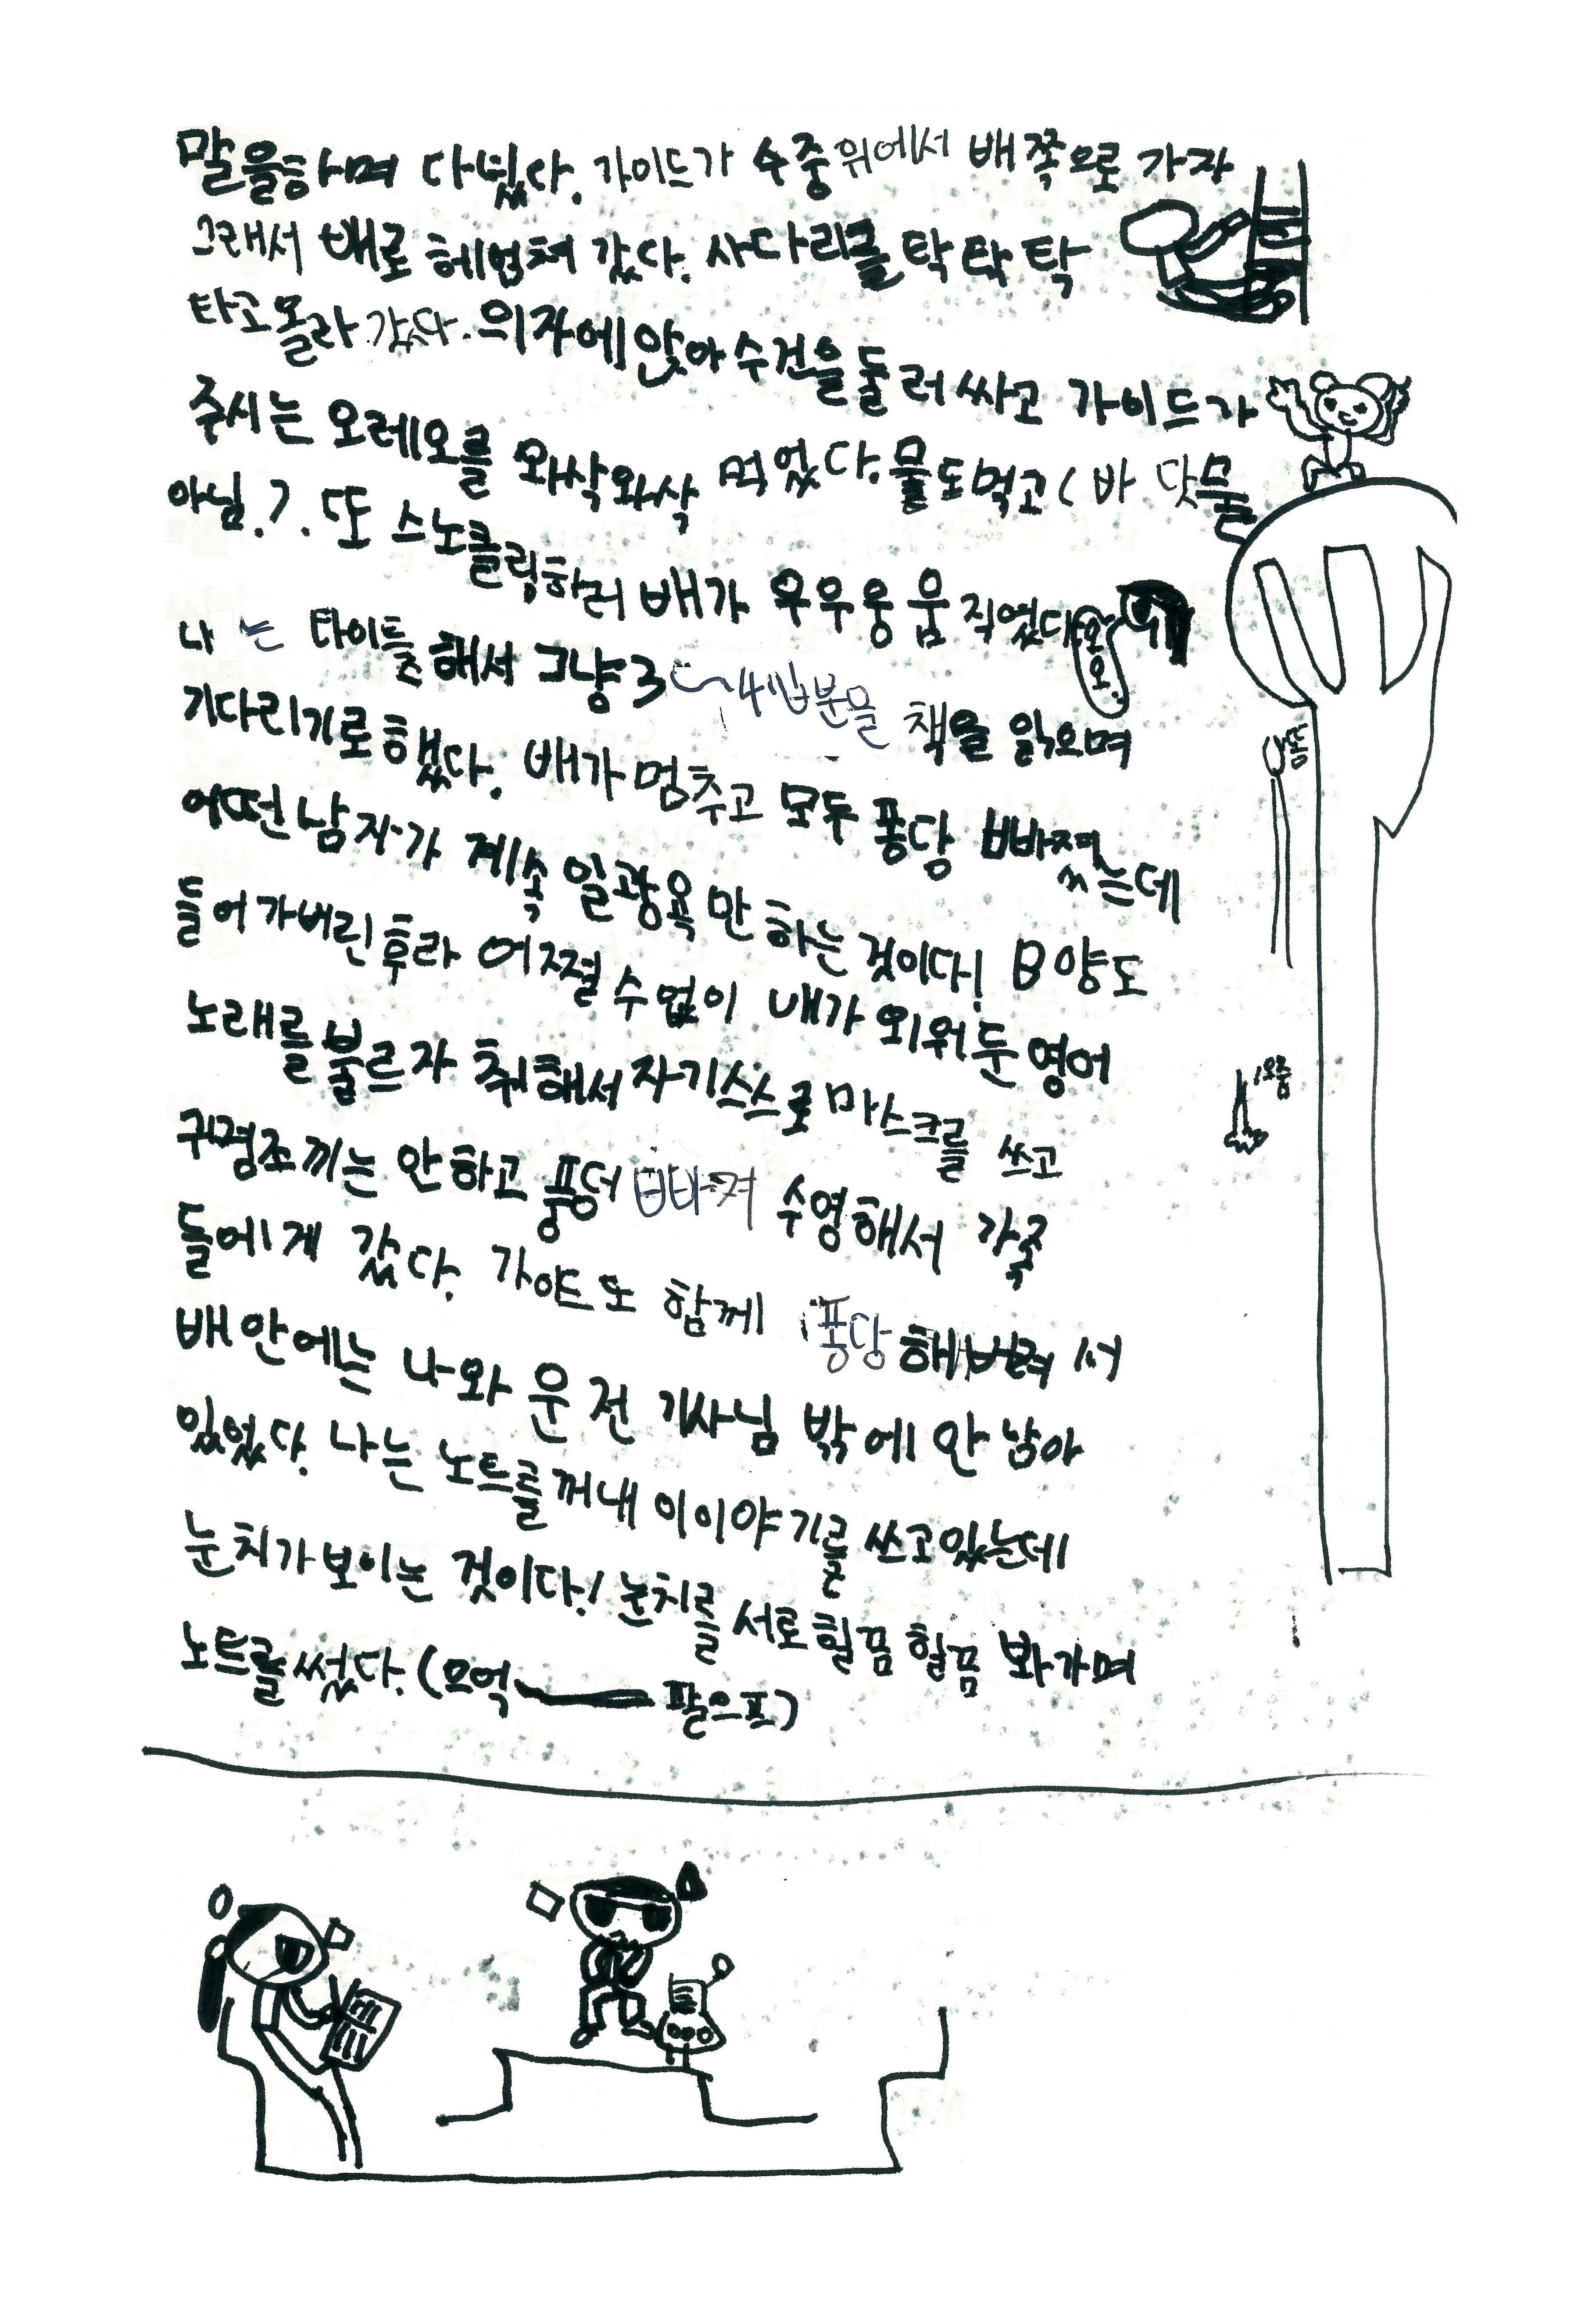 말을하며 다녔다. 가이드가 수중위에서 배쪽으로 가자
그래서 배로 헤엄쳐 갔다. 사다리를 탁 탁 탁
타고 올라 갔다. 의자에 앉아 수건을 둘러 싸고 가이드가
주시는 오레오를 와삭와삭 먹었다. 물도먹고 (바닷물
아님.). 또 스노클링하러 배가 우우웅 움직였다
오오.
나는 타이틀해서 그냥 3~4십분을 책을 읽으며
기다리기로 했다. 배가 멈추고 모두 퐁당 빠졌는데
어떤 남자가 계속 일광욕만 하는 것이다! B양도
들어가버린 후라 어쩔 수 없이 내가 외워둔 영어
노래를 불르자 취해서 자기스스로 마스크를 쓰고
귀명조끼는 안하고 풍덩 빠져 수영해서 가족
들에게 갔다. 가이드도 함께 퐁당 해버려서
배 안에는 나와 운전 기사님 밖에 안 남아
있었다. 나는 노트를 꺼내 이 이야기를 쓰고있는데
눈치가 보이는 것이다! 눈치를 서로 힐끔 힐끔 봐가며
노트를 썼다. (으억 팔으프)
똥
오줌